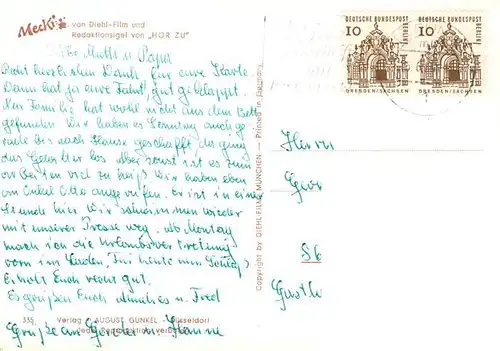 Mecki von Diehl-Film und
Redaktionsigel von „HÖR ZU“
Liebe Mutti u. Papa
Recht herzlichen Dank für eure Karte.
Dann hat ja eure Fahrt gut geklappt.
Nur Familie hat wohl nicht aus dem Bett
gefunden. Wir haben es Sonntag auch
rade bis nach Hause geschafft, da ging
das Gewitter los. Aber sonst ist es zum
Arbeiten viel zu heiß. Wir haben eben
an Onkel Otto angerufen. Er ist in einer
Stunde hier. Wir schwimmen wieder
mit unserer Presse weg. Ab Montag
mach ich die Urlaubsvertretung
vorn im Laden. Für heute nun Schluß
Erholt Euch recht gut.
Es grüßen Euch u. Fred
Grüße an u. Hanne
335 Verlag AUGUST GUNKEL - Düsseldorf
Jede Reproduktion verboten
Copyright by DIEHL-FILM, MÜNCHEN — Printed in Germany
10 DEUTSCHE BUNDESPOST BERLIN
DRESDEN/SACHSEN
10 DEUTSCHE BUNDESPOST BERLIN
DRESDEN/SACHSEN
Herrn
Geor